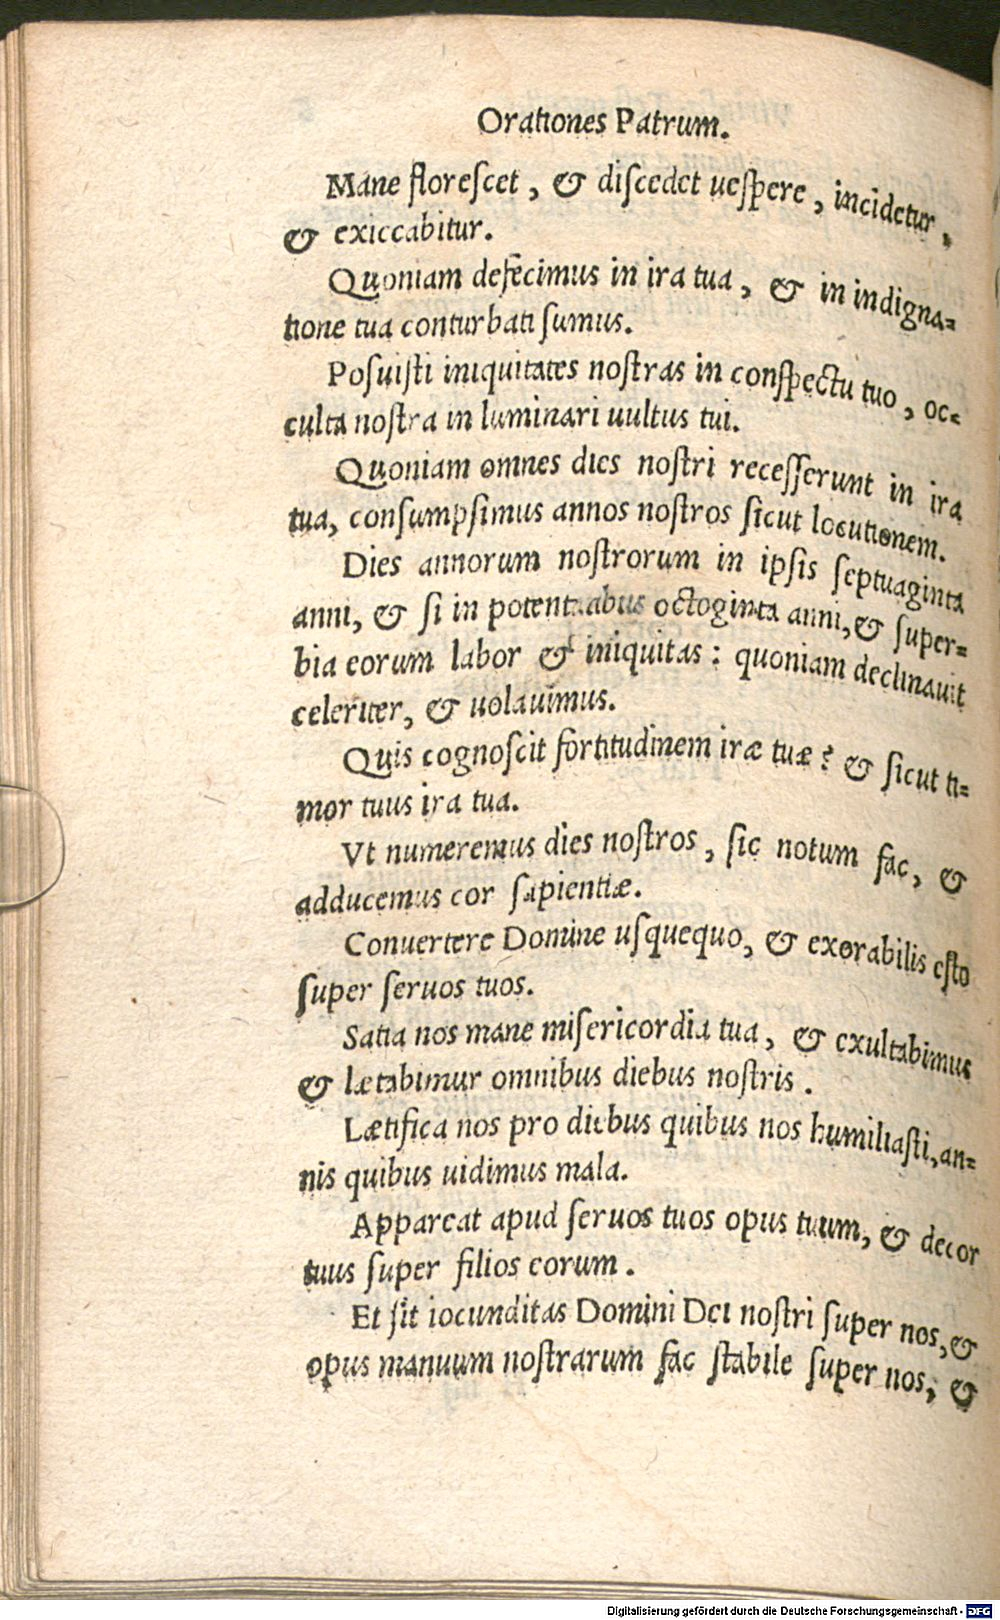 Orationes Patrum.
Mane floreſcet, & diſcedet ueſpere, incidetur,
& exiccabitur.
Quoniam defecimus in ira tua, & in indigna=
tione tua conturbati ſumus.
Poſuiſti iniquitates noſtras in conſpectu tuo, oc=
culta noſtra in luminari uultus tui.
Quoniam omnes dies noſtri receſſerunt in ira
tua, conſumpſimus annos noſtros ſicut locutionem.
Dies annorum noſtrorum in ipſis ſeptuaginta
anni, & ſi in potentiabus octoginta anni, & ſuper=
bia eorum labor & iniquitas: quoniam declinauit
celeriter, & uolauimus.
Quis cognoſcit fortitudinem iræ tuæ? & ſicut ti=
mor tuus ira tua.
Vt numeremus dies noſtros, ſic notum fac, &
adducemus cor ſapientiæ.
Conuertere Domine uſquequo, & exorabilis eſto
ſuper ſeruos tuos.
Satia nos mane miſericordia tua, & exultabimus
& lætabimur omnibus diebus noſtris.
Lætifica nos pro diebus quibus nos humiliaſti, an=
nis quibus uidimus mala.
Appareat apud ſeruos tuos opus tuum, & decor
tuus ſuper filios eorum.
Et ſit iocunditas Domini Dei noſtri ſuper nos, &
opus manuum noſtrarum fac ſtabile ſuper nos, &
Digitalisierung gefördert durch die Deutsche Forschungsgemeinschaft - DFG